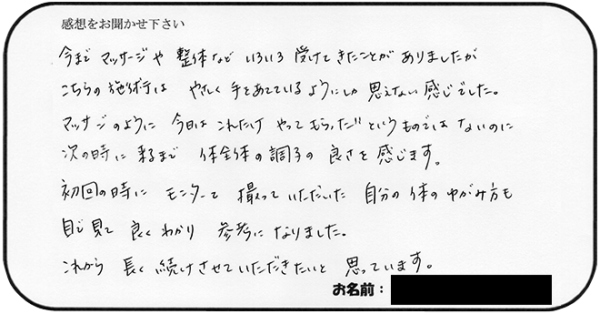 感想をお聞かせ下さい
今まで マッサージや 整体など いろいろ 受けてきたことが ありましたが
こちらの施術は やさしく 手をあてているようにしか 思えない 感じでした。
マッサージのように 今日は これだけ やってもらった"というものでは ないのに
次の時に 来るまで 体全体の 調子の 良さを 感じます。
初回の時に モニターで 撮って いただいた 自分の 体の ゆがみ方も
目で 見て 良く わかり 参考に なりました。
これから 長く 続けさせて いただきたいと 思っています。
お名前：